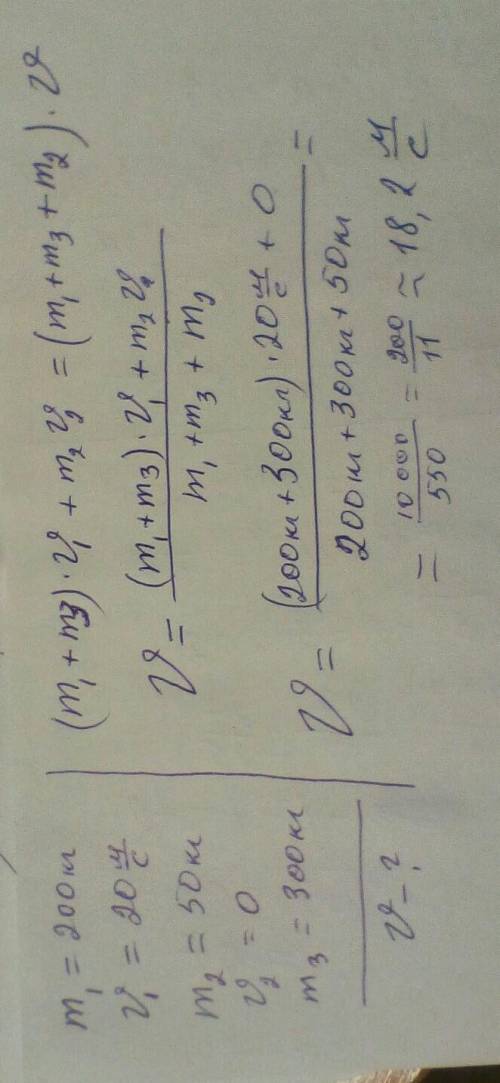 m₁ = 200кг
υ₁ = 20 м/с
m₂ = 50кг
υ₂ = 0
m₃ = 300кг
υ - ?
(m₁ + m₃) · υ₁ + m₂ υ₂ = (m₁ + m₃ + m₂) · υ
υ = ((m₁ + m₃) · υ₁ + m₂ υ₂) / (m₁ + m₃ + m₂)
υ = ((200кг + 300кг) · 20 м/с + 0) / (200кг + 300кг + 50кг) =
= 10 000 / 550 = 200 / 11 ≈ 18,2 м/с